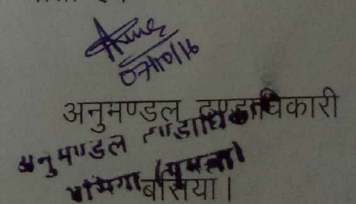 07/10/16
अनुमण्डल दण्डाधिकारी
अनुमण्डल दण्डाधिकारी
बसिया (गुमला)
बसिया।